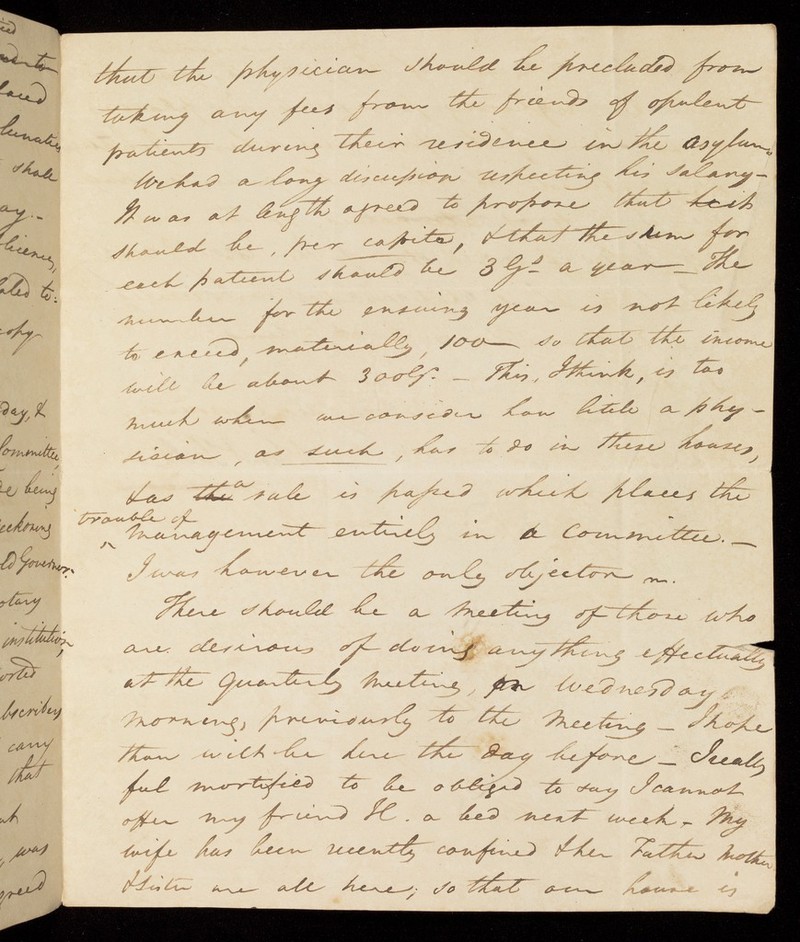 that the physician should be precluded from
taking any fees from the friends of opulent
patients during their residence in the asylum.
We had a long discussion respecting his salary –
It was at length agreed to propose that it
should be, per capita, & that the sum for
each patient should be 3 Gs. a year – The
number for the ensuing year is not likely
to exceed, materially, 100 – so that the income
will be about 300 G. – This, I think, is too
much when we consider how little a phy-
sician, as such, has to do in these houses,
& as a rule is passed which places the
trouble of
management entirely in a Committee. –
I was however the only objector
There should be a meeting of those who
are desirous of doing anything effectually
at the Quarterly Meeting, on Wednesday
morning, previously to the meeting – I hope
thou wilt be here the day before – I really
feel mortified to be obliged to say I cannot
offer my friend H. a bed next week – My
wife has been recently confined & her Father Mother
& Sister are all here; so that our house is
shall
day, &
Committee,
being
reckoning
old Governor.
institution,
carry
that
was
agreed